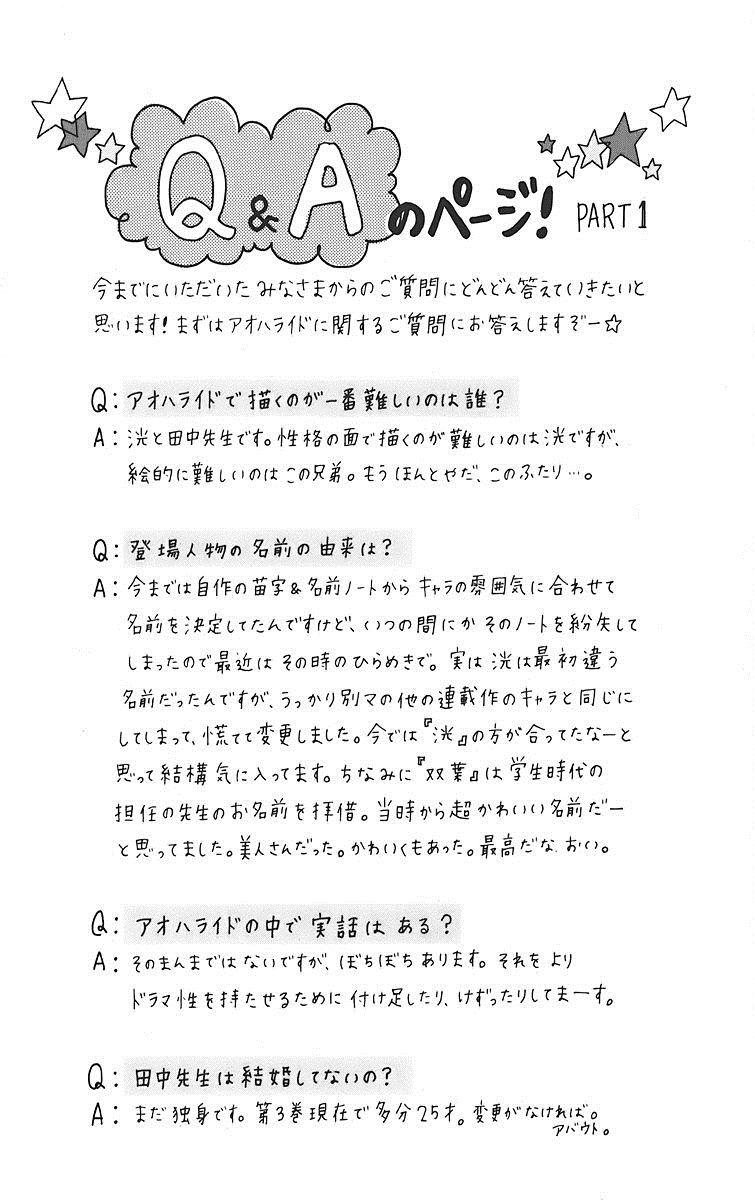 Q&Aのページ! PART1
今までにいただいた みなさまからの ご質問に どんどん答えていきたいと
思います! まずは アオハライドに関する ご質問に お答えしますぞー☆
Q: アオハライドで 描くのが 一番 難しいのは 誰?
A: 洸と田中先生です。性格の面で描くのが 難しいのは 洸ですが、
絵的に難しいのは この兄弟。もう ほんとやだ、このふたり…。
Q: 登場人物の 名前の 由来は?
A: 今までは自作の苗字&名前ノートから キャラの雰囲気に合わせて
名前を決定してたんですけど、いつの間にか そのノートを紛失して
しまったので最近は その時のひらめきで。実は 洸は最初違う
名前だったんですが、うっかり別マの他の連載作のキャラと同じに
してしまって、慌てて変更しました。今では『洸』の方が合ってたなーと
思って結構 気に入ってます。ちなみに『双葉』は 学生時代の
担任の先生のお名前を拝借。当時から超 かわいい名前だー
と思ってました。美人さんだった。かわいくもあった。最高だな おい。
Q: アオハライドの中で 実話は ある?
A: そのまんまでは ないですが、ぼちぼち あります。それを より
ドラマ性を持たせるために 付け足したり、けずったりしてまーす。
Q: 田中先生は 結婚してないの?
A: まだ 独身です。第3巻現在で 多分25才。変更がなければ。
アバウト。